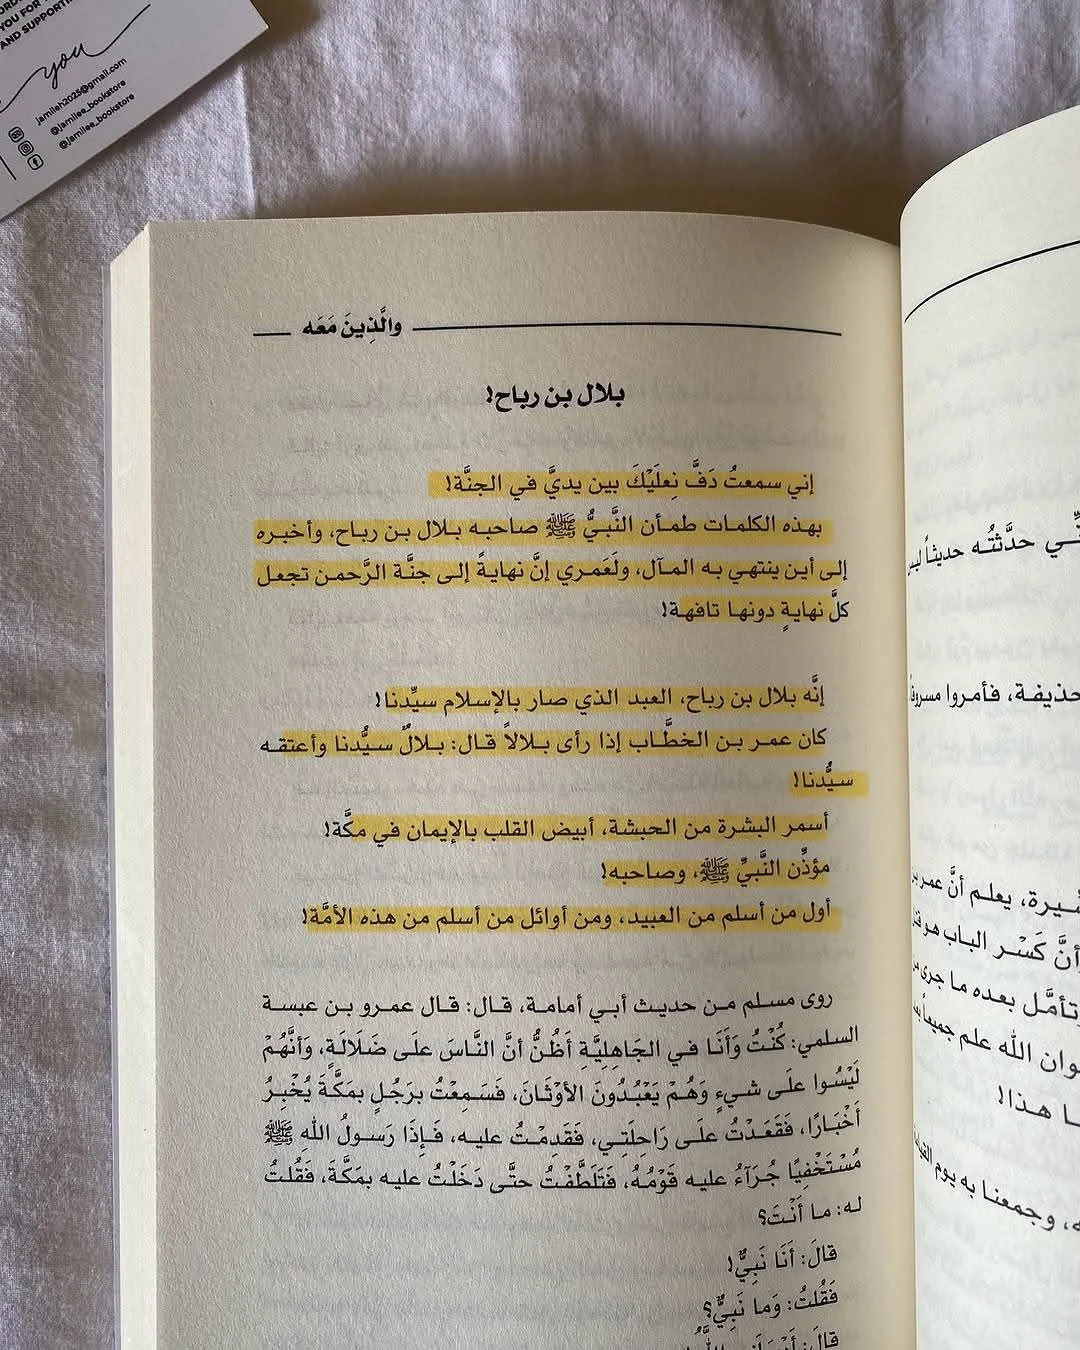 YOU FOR
AND SUPPORTIN
you
jamileh2025@gmail.com
@jamilee_bookstore
@jamilee_bookstore
والَّذِينَ مَعَه
بلال بن رباح!
إني سمعتُ دَفَّ نِعلَيْكَ بين يديَّ في الجنَّة!
بهذه الكلمات طمأن النَّبيُّ ﷺ صاحبه بلال بن رباح، وأخبره
إلى أين ينتهي به المآل، ولَعَمري إنَّ نهايةً إلى جنَّة الرَّحمن تجعل
كلَّ نهايةٍ دونها تافهة!
إنَّه بلال بن رباح، العبد الذي صار بالإسلام سيِّدنا!
كان عمر بن الخطَّاب إذا رأى بلالاً قال: بلالٌ سيُّدنا وأعتقه
سيُّدنا!
أسمر البشرة من الحبشة، أبيض القلب بالإيمان في مكَّة!
مؤذِّن النَّبيِّ ﷺ، وصاحبه!
أول من أسلم من العبيد، ومن أوائل من أسلم من هذه الأمَّة!
روى مسلم من حديث أبي أمامة، قال: قال عمرو بن عبسة
السلمي: كُنْتُ وَأَنَا في الجَاهِليَّةِ أَظُنُّ أنَّ النَّاسَ علَى ضَلَالَةٍ، وَأنَّهُمْ
لَيْسُوا علَى شيءٍ وَهُمْ يَعْبُدُونَ الأوْثَانَ، فَسَمِعْتُ برَجُلٍ بمَكَّةَ يُخْبِرُ
أَخْبَارًا، فَقَعَدْتُ علَى رَاحِلَتِي، فَقَدِمْتُ عليه، فَإِذَا رَسولُ اللهِ ﷺ
مُسْتَخْفِيًا جُرَآءُ عليه قَوْمُهُ، فَتَلَطَّفْتُ حتَّى دَخَلْتُ عليه بمَكَّةَ، فَقُلتُ
له: ما أَنْتَ؟
قالَ: أَنَا نَبِيٌّ!
فَقُلتُ: وَما نَبِيٌّ؟
قالَ:
حدَّثتُه حديثاً ليس
حذيفة، فأمروا مسروقاً
يعلم أنَّ عمر بن
أنَّ كَسْر الباب هو
وتأمَّل بعده ما جرى
الله علم جميعاً
هذا!
وجمعنا به يوم